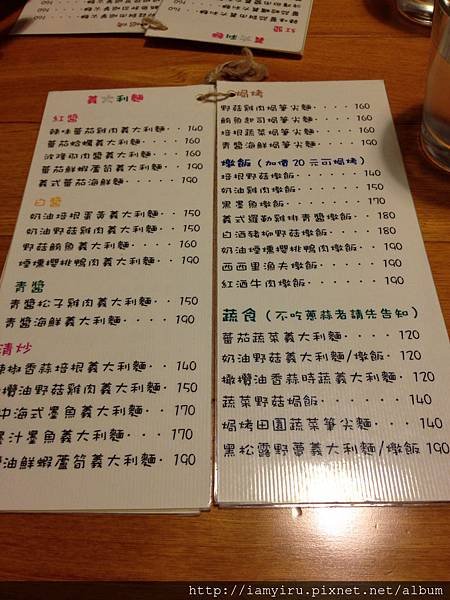 義大利麵
紅醬
辣味蕃茄雞肉義大利麵・・140
蕃茄蛤蠣義大利麵・・・160
波隆那肉醬義大利麵・・・160
蕃茄鮮蝦蘆筍義大利麵・・190
義式蕃茄海鮮麵・・・・190
白醬
奶油培根蛋黃義大利麵・・150
奶油野菇雞肉義大利麵・・150
野菇鮪魚義大利麵・・・・160
煙燻櫻桃鴨肉義大利麵・・190
青醬
青醬松子雞肉義大利麵・・150
青醬海鮮義大利麵・・・・190
清炒
辣椒香蒜培根義大利麵・・140
欖油野菇雞肉義大利麵・150
中海式墨魚義大利麵・・170
墨汁墨魚義大利麵・・・170
油鮮蝦蘆筍義大利麵・190
焗烤
野菇雞肉焗筆尖麵・・・・160
鮪魚起司焗筆尖麵・・・・160
培根蔬菜焗筆尖麵・・・・160
青醬海鮮焗筆尖麵・・・・190
燉飯（加價20元可焗烤）
培根野菇燉飯・・・・・・140
奶油雞肉燉飯・・・・・・150
黑墨魚燉飯・・・・・・・170
義式羅勒雞排青醬燉飯・・180
白酒豬柳野菇燉飯・・・・180
奶油煙燻櫻桃鴨肉燉飯・・190
西西里漁夫燉飯・・・・・190
紅酒牛肉燉飯・・・・・・190
蔬食（不吃蔥蒜者請先告知）
蕃茄蔬菜義大利麵・・・・120
奶油野菇義大利麵/燉飯・120
橄欖油香蒜時蔬義大利麵・120
蔬菜野菇焗飯・・・・・・140
焗烤田園蔬菜筆尖麵・・・140
黑松露野蕈義大利麵/燉飯190
http://iamyiru.pixnet.net/album